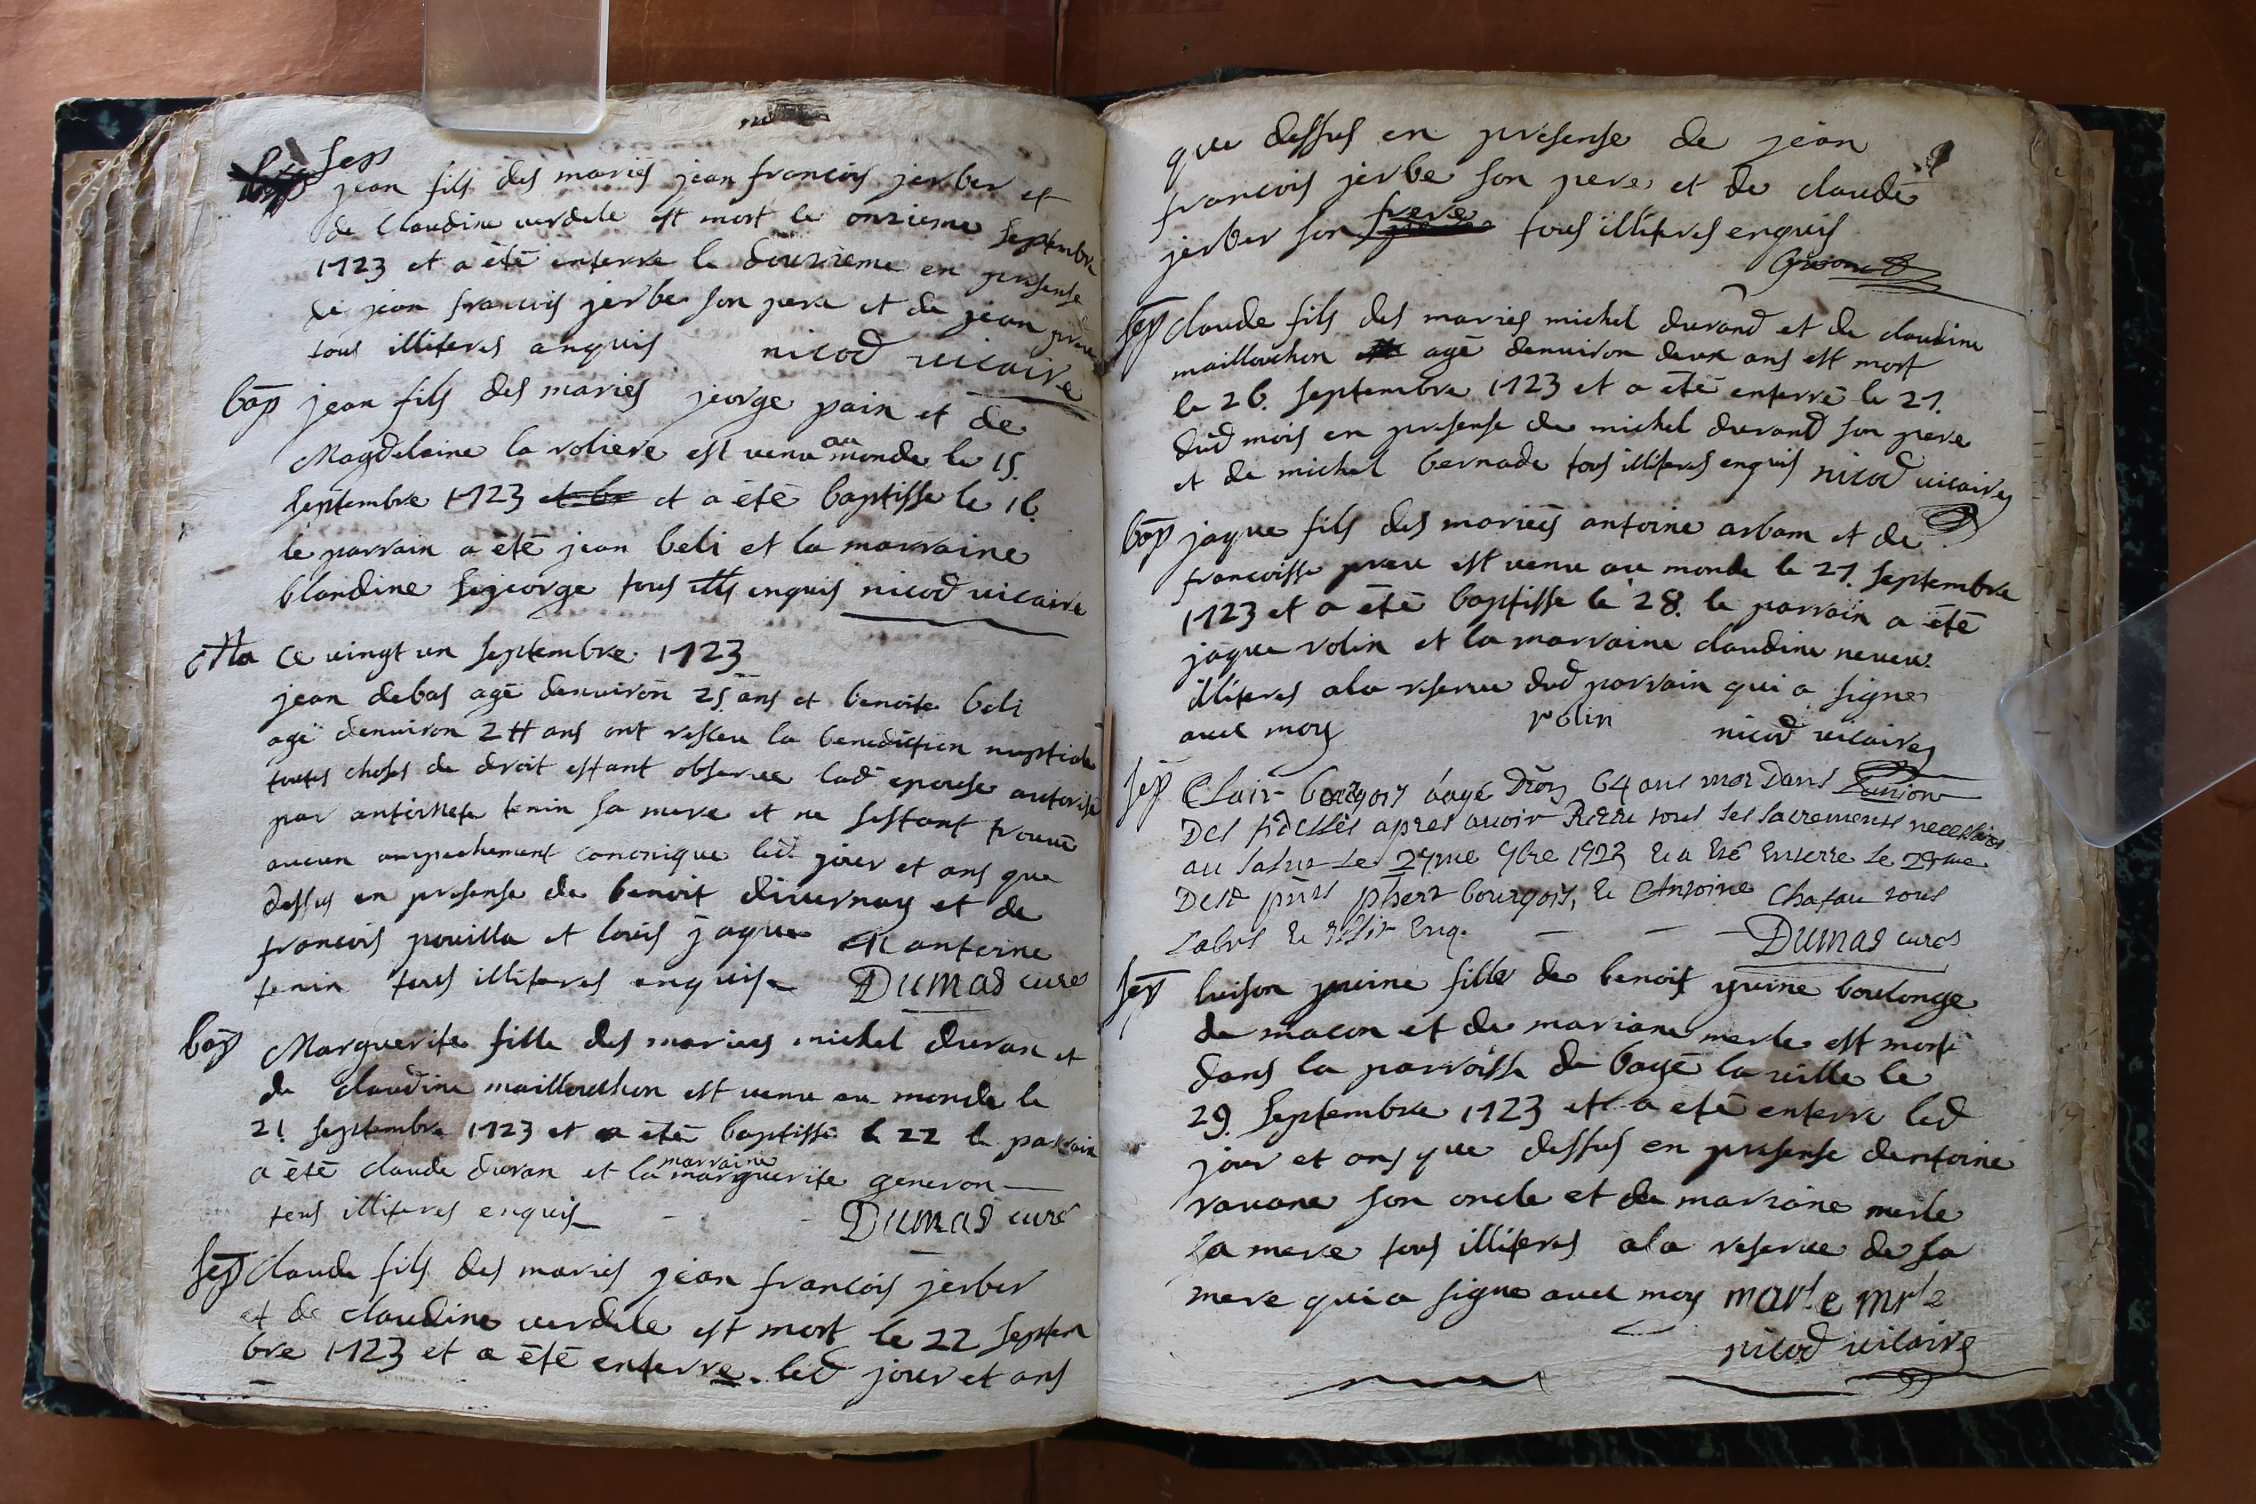 Sep
jean fils des mariés jean francois jerber et
de Claudine verdele est mort le onzieme septembre
1723 et a été enterre le douzieme en presense
de jean francois jerbe son pere et de jean
tous illiteres anquis nicod vicaire
bap jean fils des mariés jeorge pain et de
Magdelaine la roliere est venu au monde le 15.
septembre 1723 et a été baptisse le 16.
le parrain a été jean beli et la marraine
blandine sijeorge tous ills enquis nicod vicaire
Ma Ce vingt un septembre 1723
jean debas agé denviron 25 ans et benoite beli
agé denviron 24 ans ont resseu la benediction nuptiale
toutes choses de droit estant observee lad epouse autorisé
par antoinete tenin sa mere et ne sestant trouvé
aucun ampechement canonique led. jour et ans que
dessus en presense de benoit divernay et de
francois pouilla et louis jaque et antoine
tenin tous illiteres enquis Dumas curé
bap Marguerite fille des mariees michel duran et
de claudine maillouchon est venu au monde le
21 septembre 1723 et a été baptissé le 22 le parrain
a été claude duran et la marraine marguerite generon
tous illiteres enquis Dumas curé
sep claude fils des mariés jean francois jerber
et de claudine verdele est mort le 22 septem
bre 1723 et a été enterre led jour et ans
que dessus en presense de jean
francois jerbe son pere et de claude
jerber son frere tous illiteres enquis
sep claude fils des mariés michel durand et de claudine
maillouchon agé denviron deux ans est mort
le 26. septembre 1723 et a été enterré le 27.
dud mois en presense de michel durand son pere
et de michel bernade tous illiteres enquis nicod vicaire
bap jaque fils des mariées antoine arbam et de
francoisse preu est venu au monde le 27. septembre
1723 et a été baptisse le 28. le parrain a été
jaque rolin et la marraine claudine neveu
illiteres ala reserve dud parrain qui a signe
avec moy rolin nicod vicaire
sep Clair bourgois aagé 64 ans mor dans Lunion
Des fidelles apres avoir Receu tous ses sacrements necessaires
au salut Le 27me 7bre 1723 Et a Eté Enterré Le 29me
Antoine Chafau tous
Enq. Dumas curé
sep luison yvine fille de benoist yvine boulonge
de macon et de mariane merle est morte
dans la parroisse de bagé la ville le
29. septembre 1723 et a eté enterre led
jour et ans que dessus en presense dantoine
ravane son oncle et de mariane merle
sa mere tous illiteres ala reserve de sa
mere qui a signe avec moy
nicod vicaire